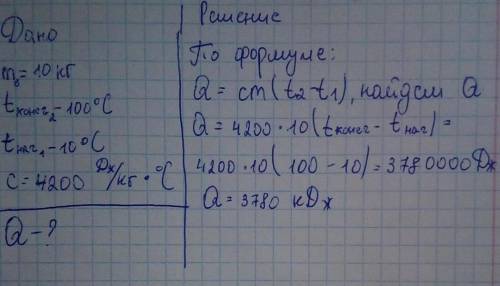 Дано
m₈ = 10 кг
t конег₂ - 100°C
t наг₁ - 10°C
c = 4200 Дж/кг • °C
Q - ?
Решение
По формуле:
Q = cm(t₂ - t₁), найдем Q
Q = 4200 · 10 (t конег - t наг) =
4200 · 10 (100 - 10) = 3780000 Дж
Q = 3780 кДж